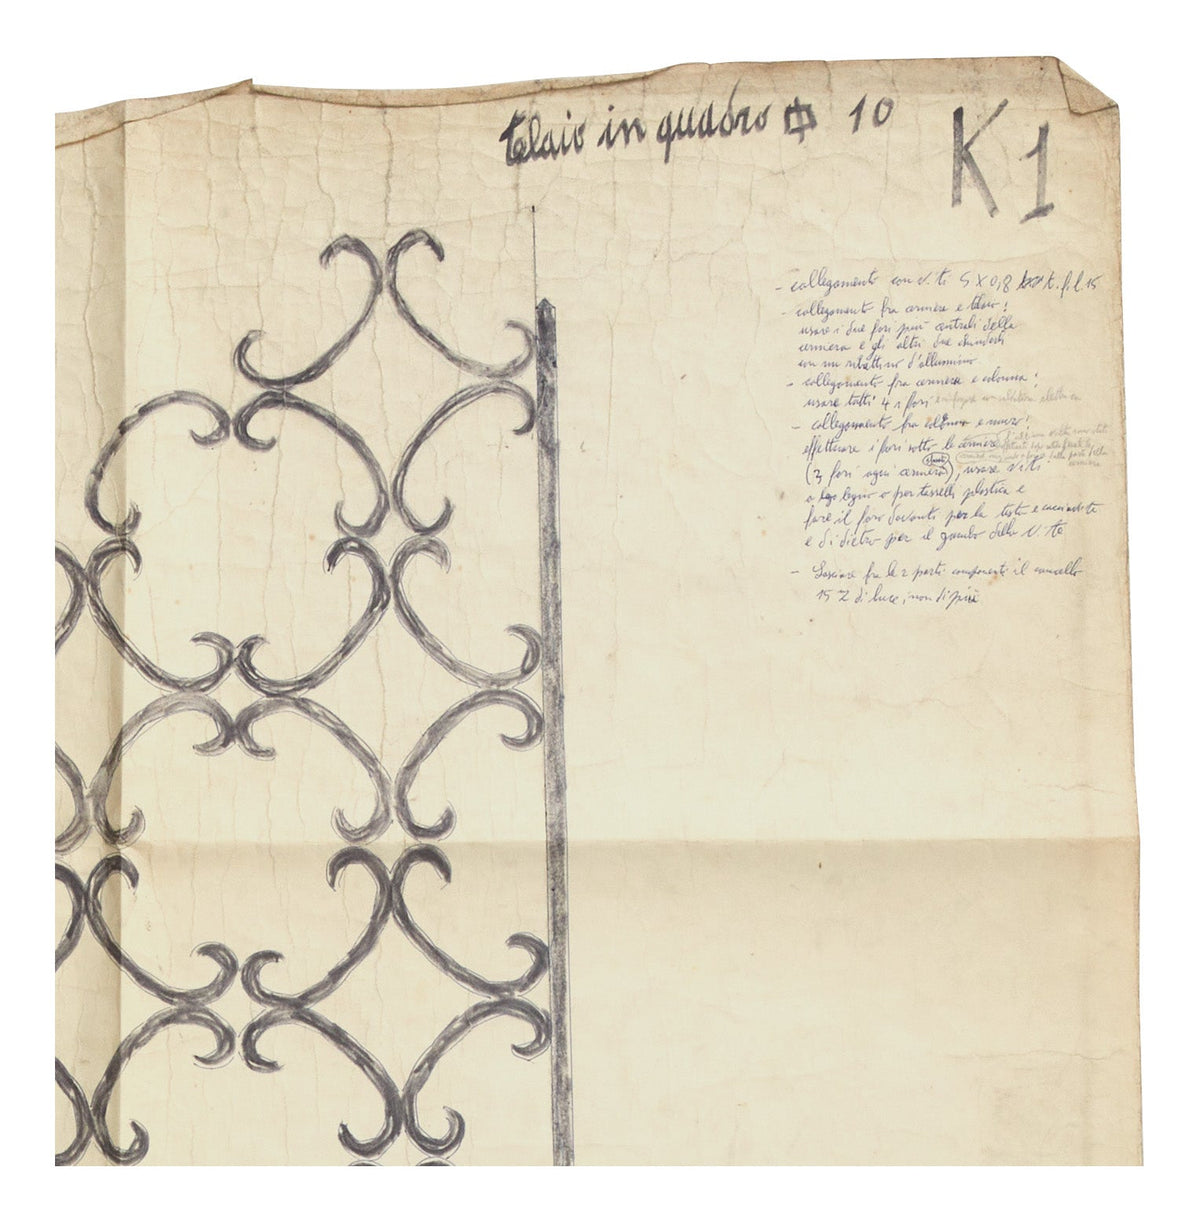 telaio in quadro 10
K1
- collegamento con v. ti 5 x 0,8 t. f. l. 15
- collegamento fra cerniera e telaio:
usare i due fori più centrali della
cerniera e gli altri due chiuderli
con un ribattino d'alluminio
- collegamento fra cerniera e colonna:
usare tutti 4 i fori
- collegamento fra colonna e muro:
effettuare i fori sotto le cerniere
(3 fori ogni cerniera), usare viti
a legno o per tasselli plastica e
fare il foro davanti per la testa e cacciavite
e di dietro per il gambo della v. te
- Lasciare fra le 2 parti componenti il cancello
15 di luce, non di più